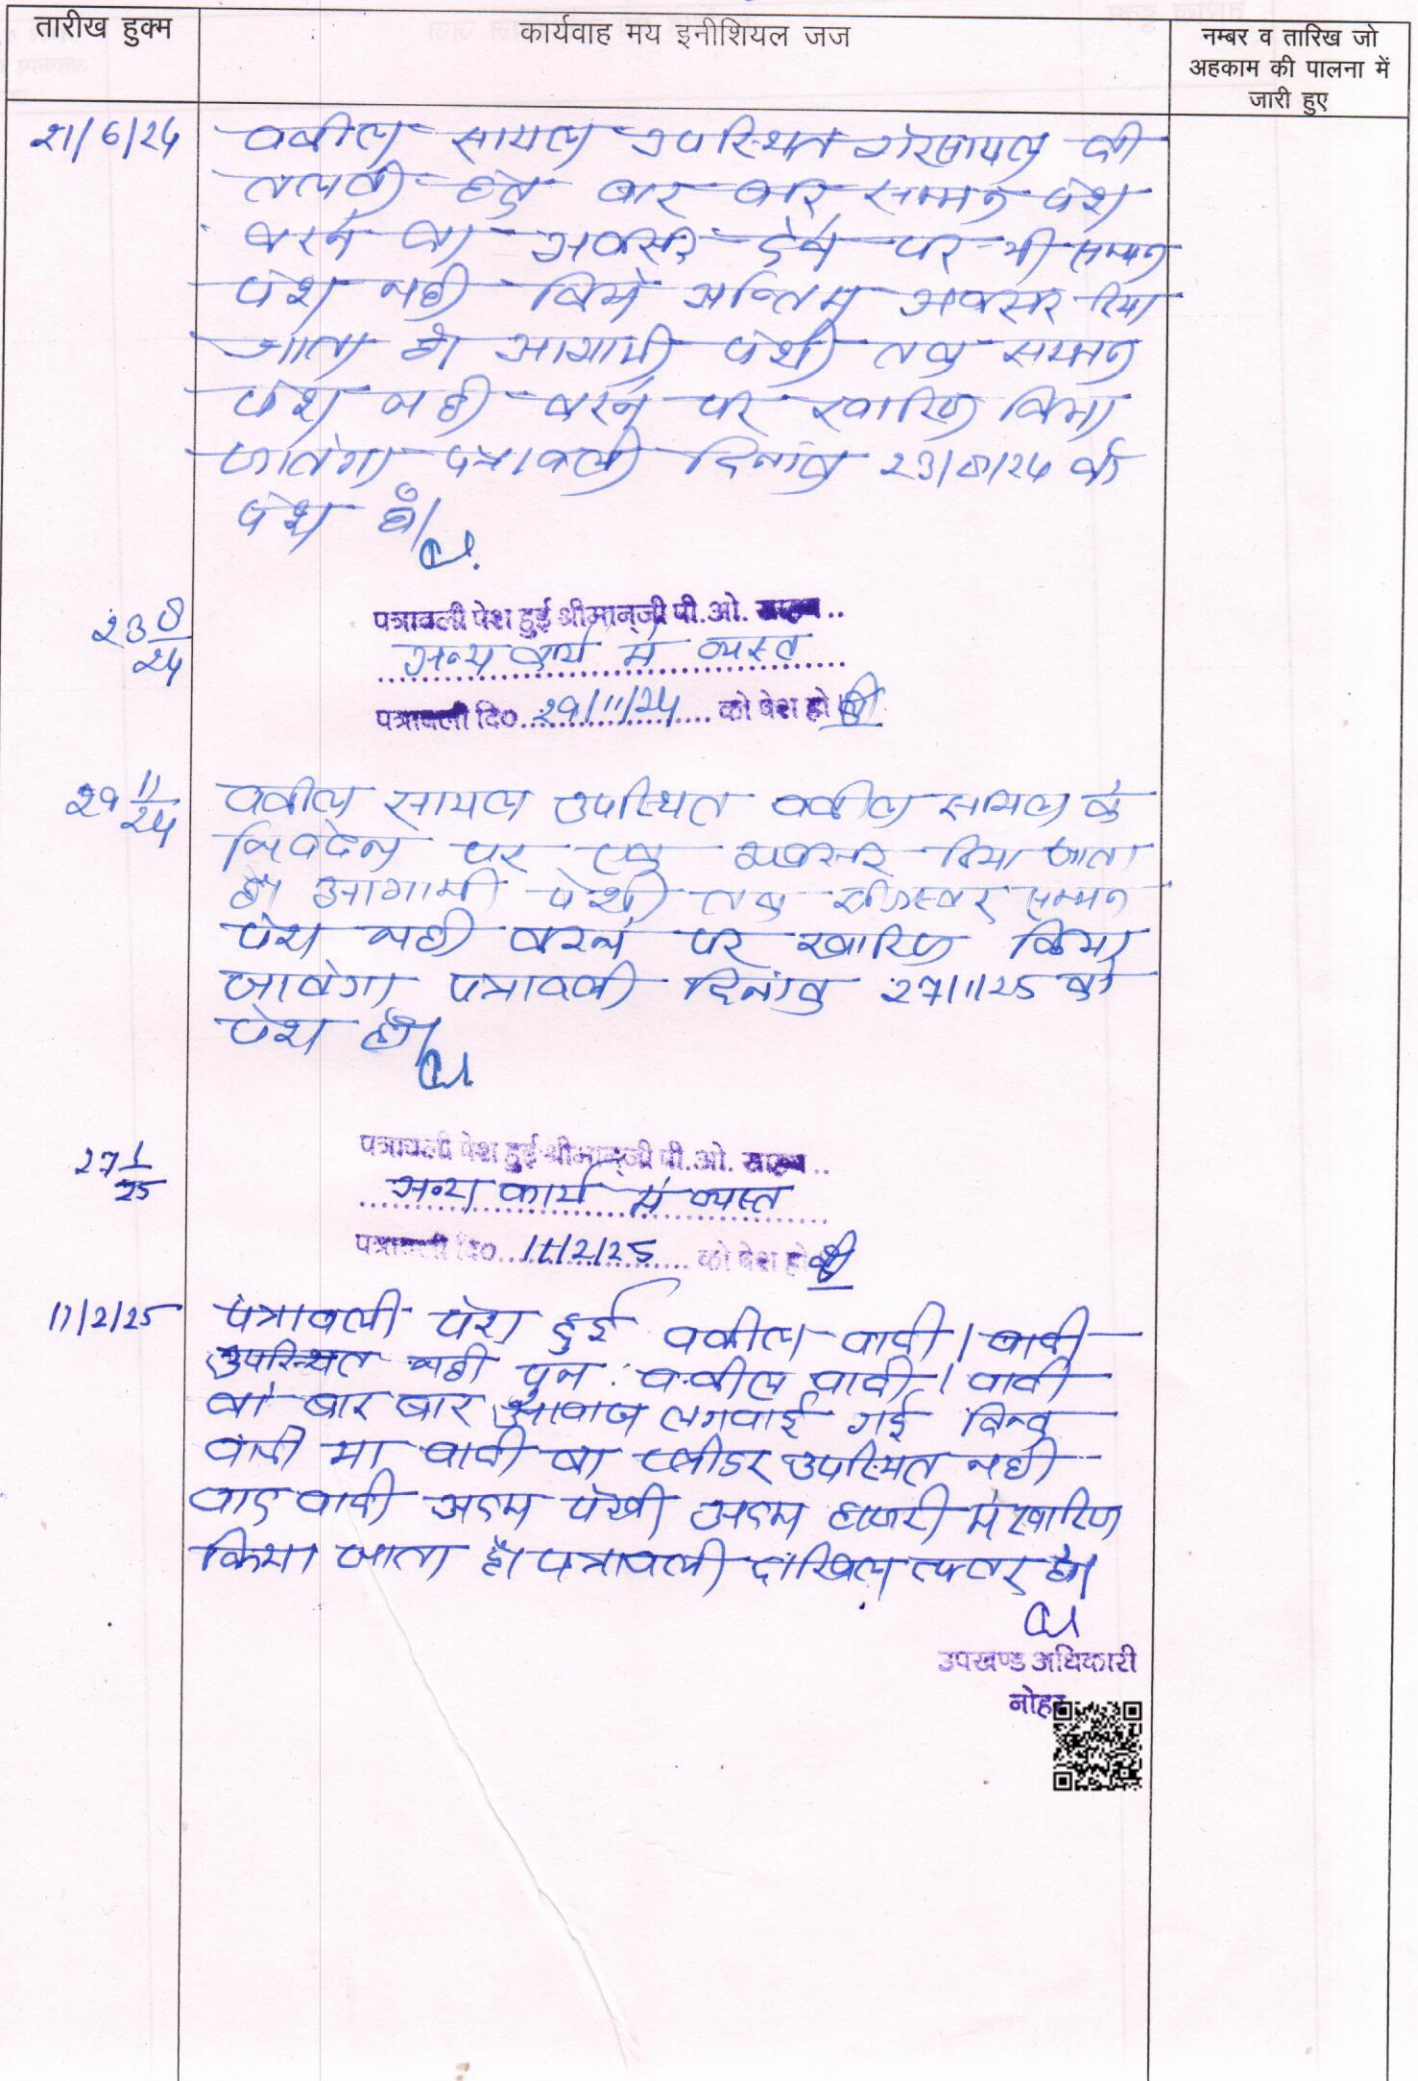 तारीख हुक्म
कार्यवाह मय इनीशियल जज
नम्बर व तारिख जो
अहकाम की पालना में
जारी हुए
21/6/24
वकील सायल उपस्थित गैरसायल की
तलबी हेतु बार बार सम्मन पेश
करने का अवसर देने पर भी सम्मन
पेश नही किये अन्तिम अवसर दिया
जाता है। आगामी पेशी तक सम्मन
पेश नही करने पर खारिज किया
जावेगा पत्रावली दिनांक 23/8/24 को
पेश हो।
23 8/24
पत्रावली पेश हुई श्रीमान्जी पी.ओ. साहब..
अन्य कार्य में व्यस्त
पत्रावली दि० 29/11/24 को पेश हो
29 11/24
वकील सायल उपस्थित वकील सायल के
निवेदन पर एक अवसर दिया जाता
है। आगामी पेशी तक सम्मन
पेश नही करने पर खारिज किया
जावेगा पत्रावली दिनांक 27/1/25 को
पेश हो।
27 1/25
पत्रावली पेश हुई श्रीमान्जी पी.ओ. साहब..
अन्य कार्य में व्यस्त
पत्रावली दि० 11/2/25 को पेश हो
11/2/25
पत्रावली पेश हुई वकील वादी/वादी
उपस्थित नही पुन: वकील वादी/वादी
को बार बार आवाज लगवाई गई किन्तु
वादी या वादी का प्लीडर उपस्थित नही
वाद वादी अदम पेरवी अदम हाजरी में खारिज
किया जाता है। पत्रावली दाखिल दफ्तर हो।
उपखण्ड अधिकारी
नोहर